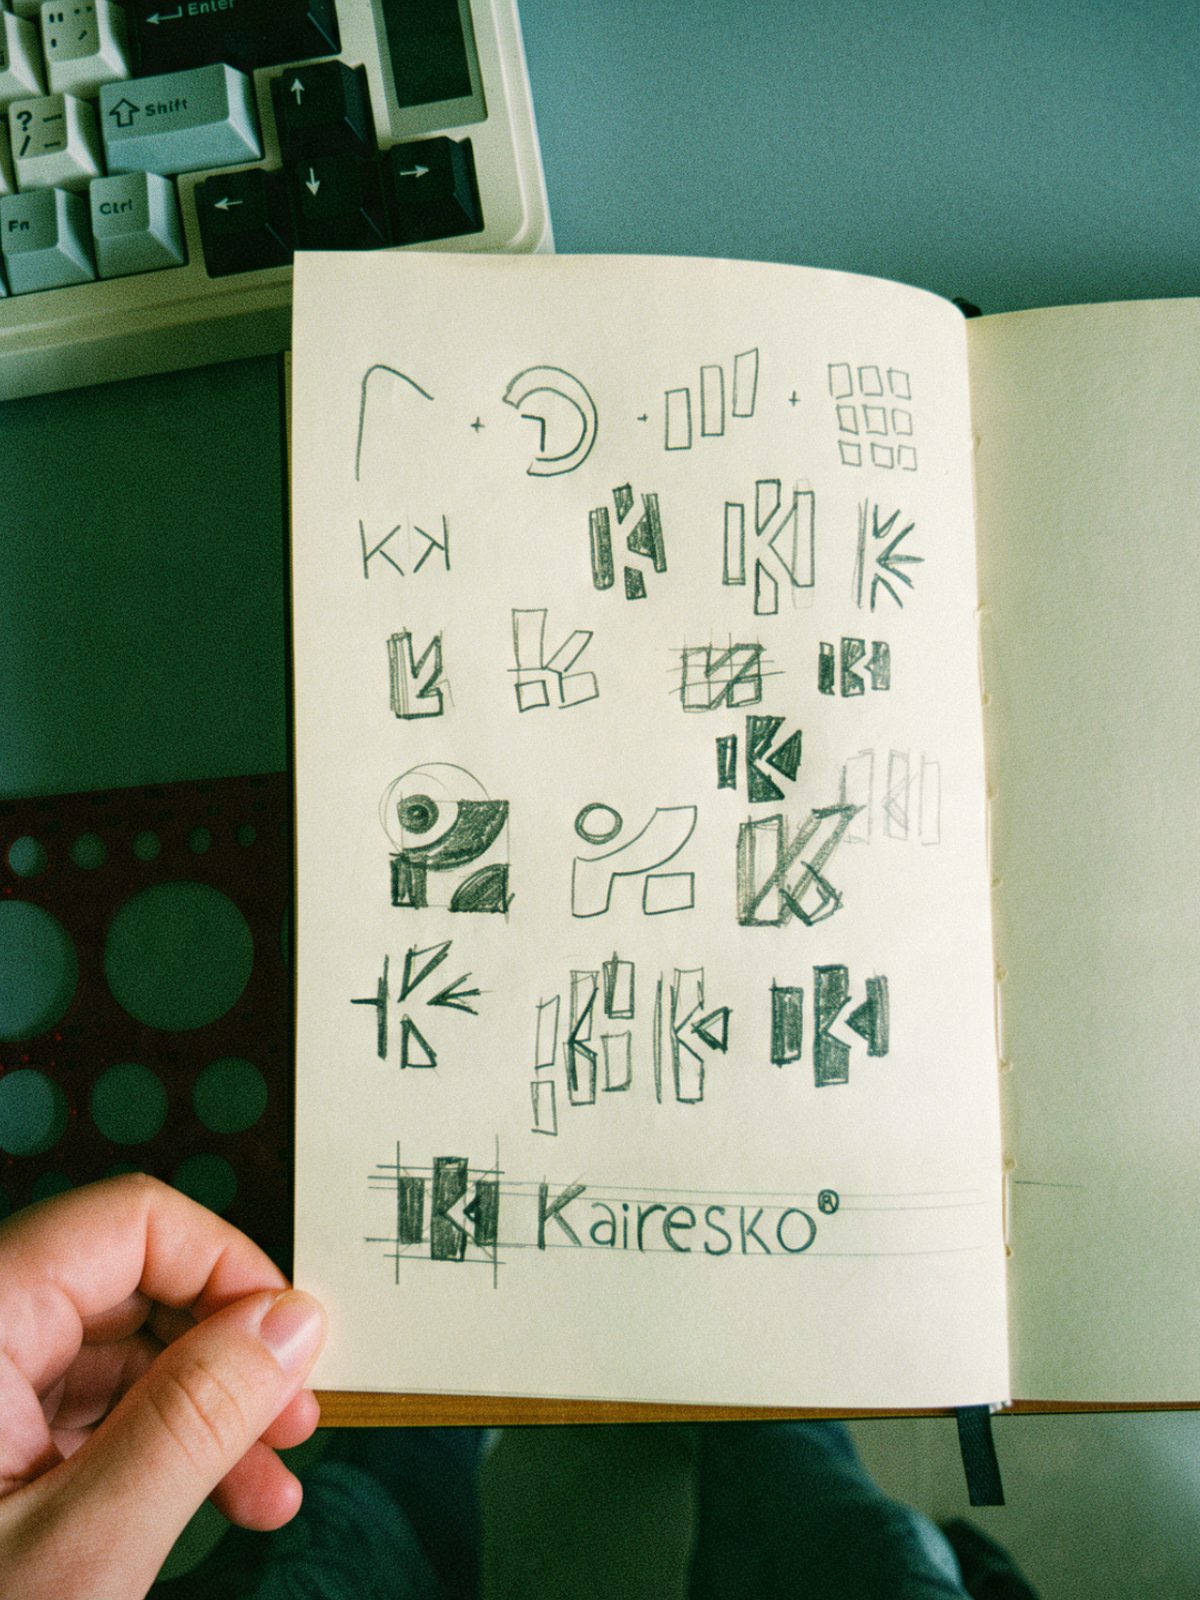 Enter
? /
Shift
Fn
Ctrl
+ + +
KK
K K K
K K K
K
K
K K K
K Kairesko®